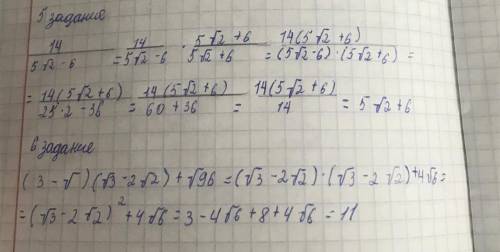 5 задание
14/(5√2 - 6) = 14/(5√2 - 6) · (5√2 + 6)/(5√2 + 6) = 14(5√2 + 6)/((5√2 - 6) · (5√2 + 6)) =
= 14(5√2 + 6)/(25 · 2 - 36) = 14(5√2 + 6)/(60 + 36) = 14(5√2 + 6)/14 = 5√2 + 6
6 задание
(3 - √)(√3 - 2√2) + √96 = (√3 - 2√2) · (√3 - 2√2) + 4√6 =
= (√3 - 2√2)² + 4√6 = 3 - 4√6 + 8 + 4√6 = 11